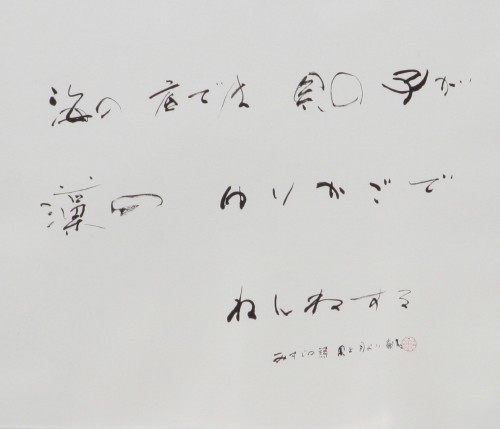 海の 底では 貝の 子が
藻の ゆりかごで
ねんねする
みすゞの詩 貝と月より